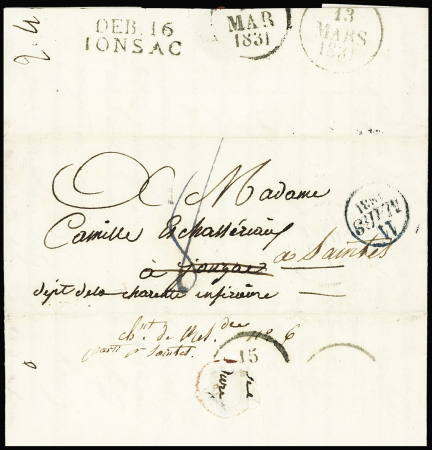 DEB. 16
IONSAC
MAR
1831
13
MARS
1831
2.4
A Madame
Camille Eschassériaux
à Jonzac à Saintes
dépt de la charente inférieure
8
1831
11
n° 6
parti pr Saintes.
15